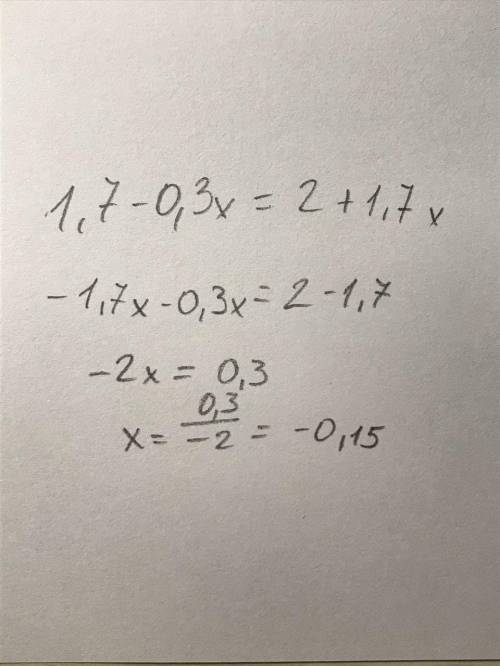 1,7 - 0,3x = 2 + 1,7x
-1,7x - 0,3x = 2 - 1,7
-2x = 0,3
x = 0,3/-2 = -0,15